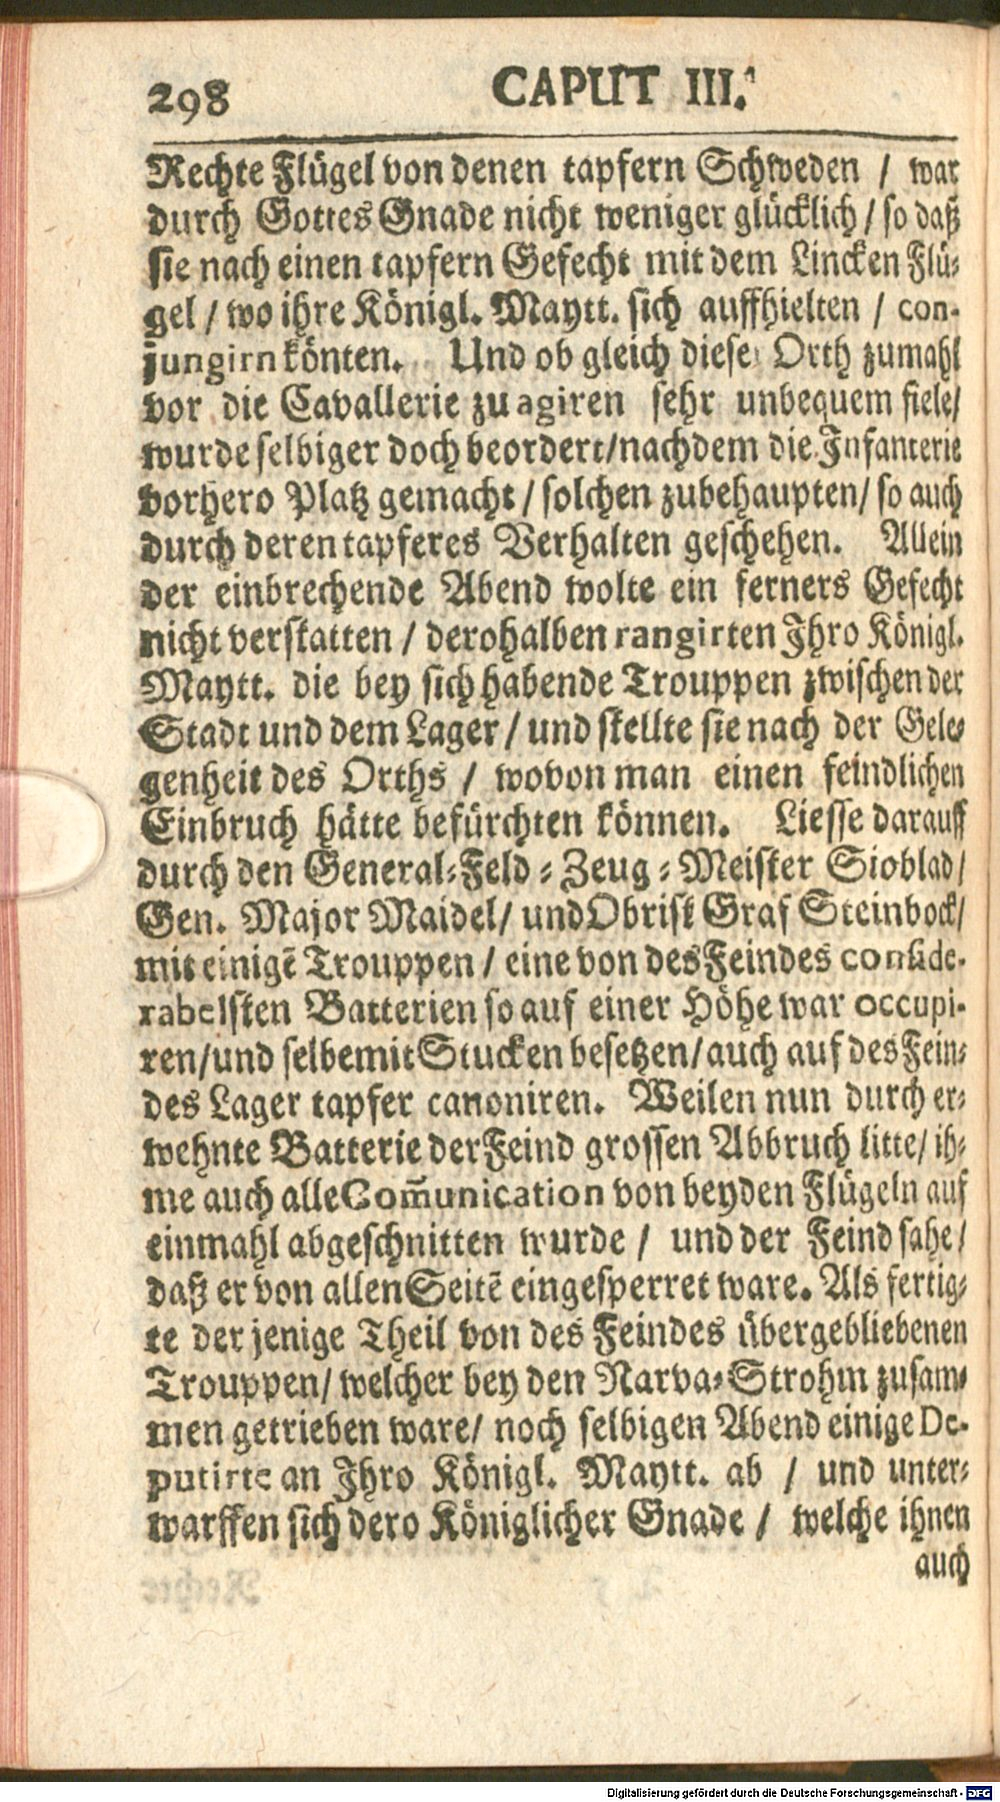 298 CAPUT III.
Rechte Flügel von denen tapfern Schweden / war
durch Gottes Gnade nicht weniger glücklich / so daß
sie nach einen tapfern Gefecht mit dem Lincken Flü-
gel / wo ihre Königl. Maytt. sich auffhielten / con-
jungirn könten. Und ob gleich diese Orth zumahl
vor die Cavallerie zu agiren sehr unbequem fiele/
wurde selbiger doch beordert/nachdem die Infanterie
vorhero Platz gemacht / solchen zubehaupten/ so auch
durch deren tapferes Verhalten geschehen. Allein
der einbrechende Abend wolte ein ferners Gefecht
nicht verstatten / derohalben rangirten Ihro Königl.
Maytt. die bey sich habende Trouppen zwischen der
Stadt und dem Lager / und stellte sie nach der Gele-
genheit des Orths / wovon man einen feindlichen
Einbruch hätte befürchten können. Liesse darauff
durch den General-Feld-Zeug-Meister Sioblad/
Gen. Major Maidel/ und Obrist Graf Steinbock/
mit einigē Trouppen / eine von des Feindes conside-
rabelsten Batterien so auf einer Höhe war occupi-
ren/und selbe mit Stucken besetzen/auch auf des Fein-
des Lager tapfer canoniren. Weilen nun durch er-
wehnte Batterie der Feind grossen Abbruch litte/ ih-
me auch alle Com̄unication von beyden Flügeln auf
einmahl abgeschnitten wurde / und der Feind sahe/
daß er von allen Seitē eingesperret ware. Als fertig-
te der jenige Theil von des Feindes übergebliebenen
Trouppen/ welcher bey den Narva-Strohm zusam-
men getrieben ware/ noch selbigen Abend einige De-
putirte an Ihro Königl. Maytt. ab / und unter-
warffen sich dero Königlicher Gnade / welche ihnen
auch
Digitalisierung gefördert durch die Deutsche Forschungsgemeinschaft - DFG